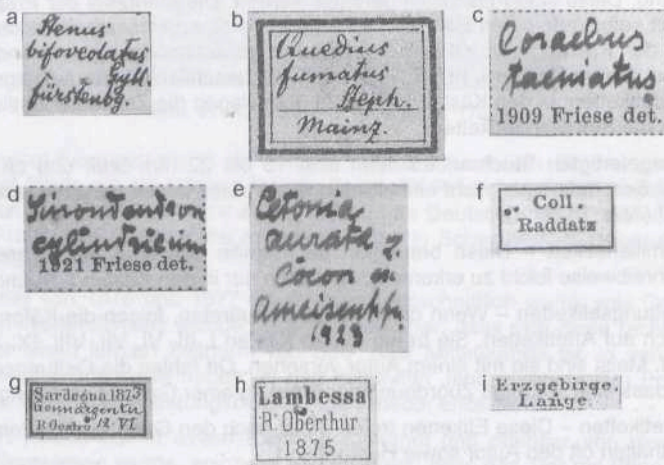 a
Stenus
bifoveolatus
Gyll.
fürstenbg.
b
Quedius
fumatus
Steph.
Mainz.
c
Coraebus
taeniatus
1909 Friese det.
d
Sinondendron
cylindricum
1921 Friese det.
e
Cetonia
aurata
Cocon
Ameisenh.
1928
f
Coll.
Raddatz
g
Sardegna 1873
Gennargentu
12 VI
h
Lambessa
R. Oberthur
1875.
i
Erzgebirge.
Lange.